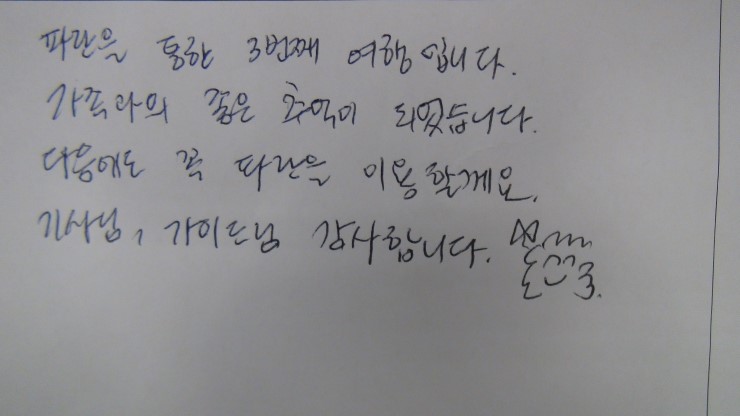 파란을 통한 3번째 여행입니다.
가족과의 좋은 추억이 되었습니다.
다음에도 꼭 파란을 이용할께요.
기사님, 가이드님 감사합니다.